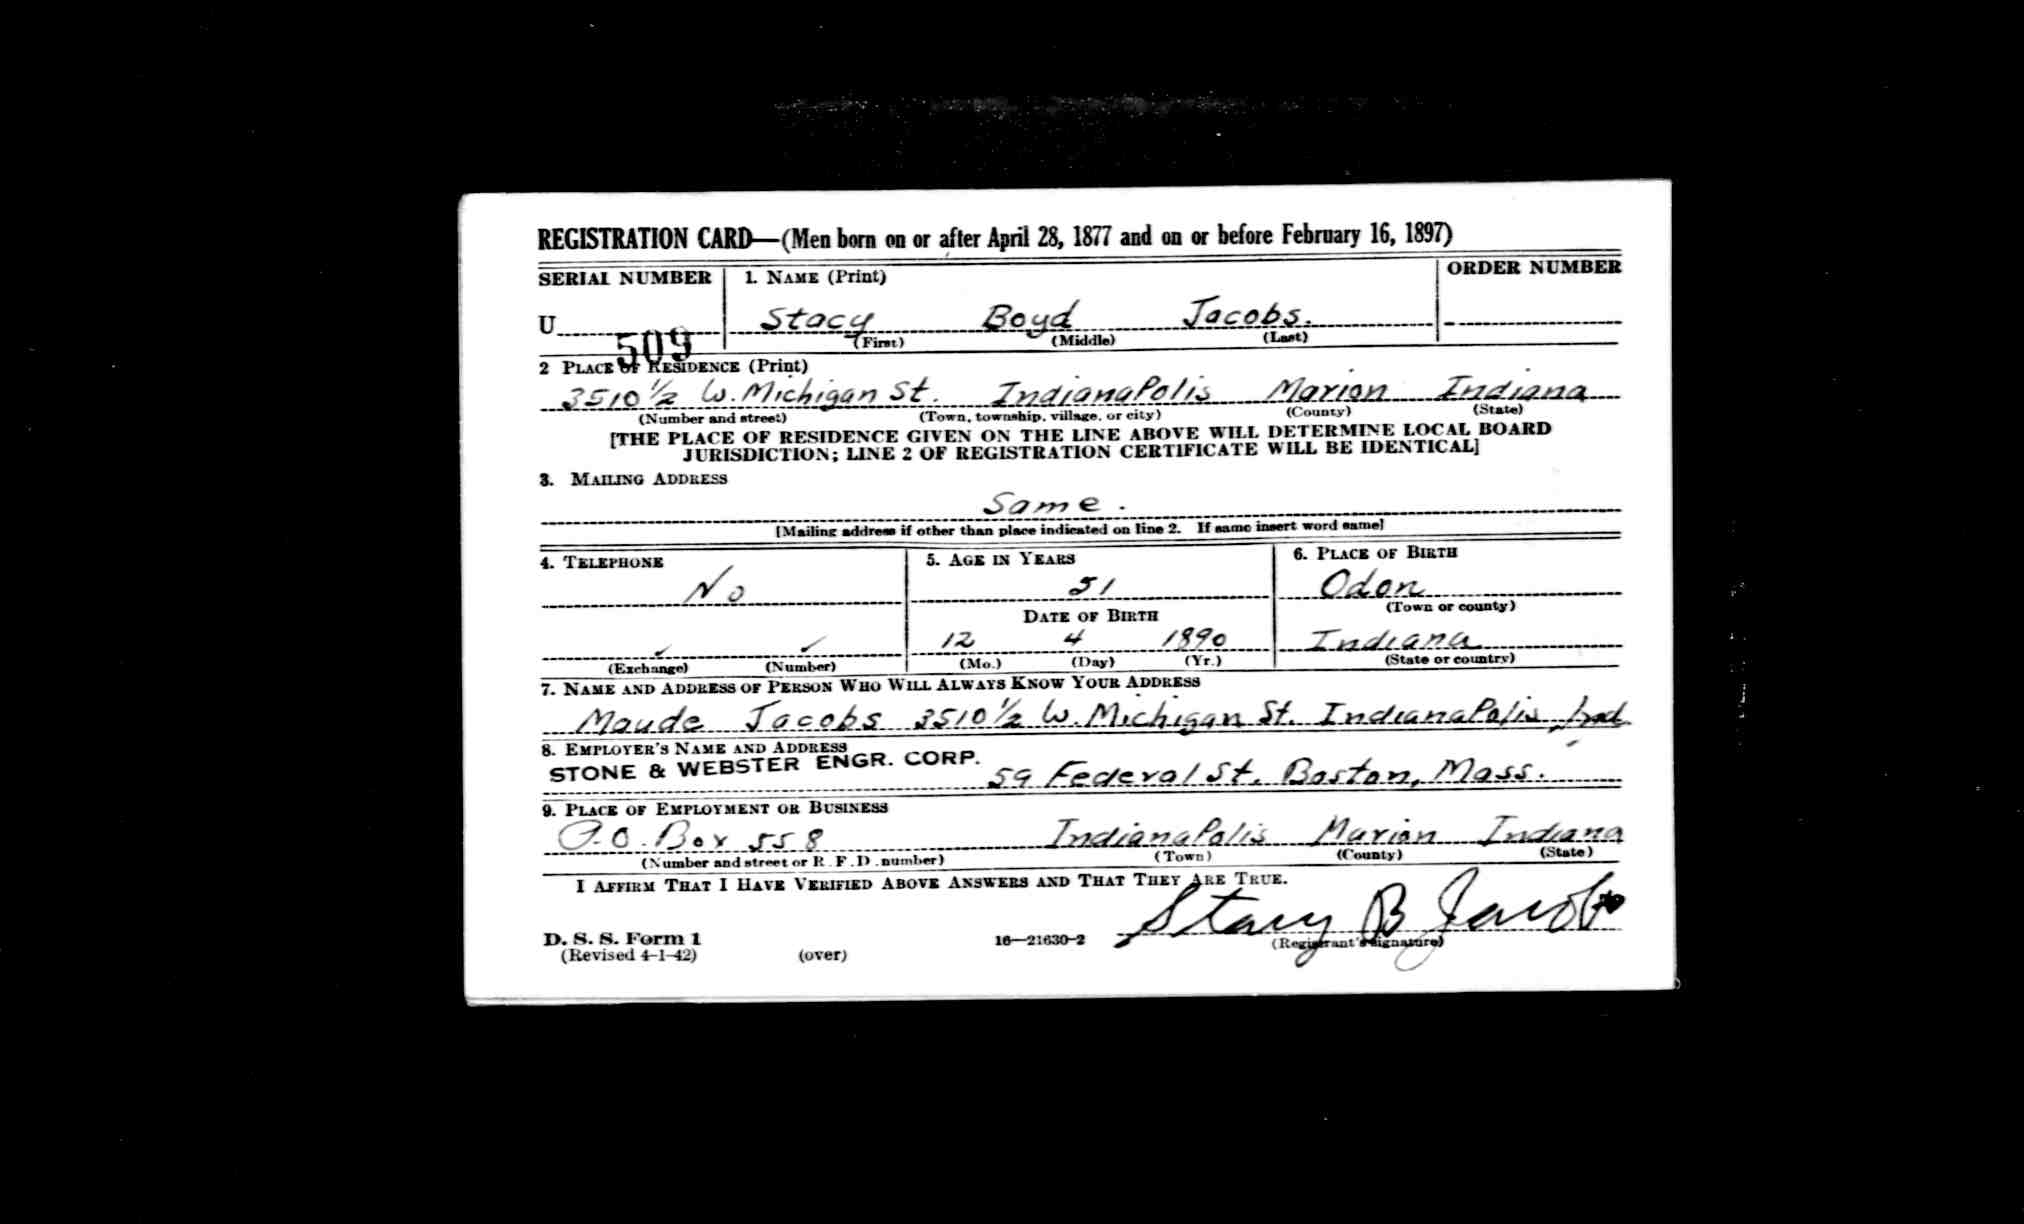 REGISTRATION CARD—(Men born on or after April 28, 1877 and on or before February 16, 1897)
SERIAL NUMBER 1. NAME (Print) ORDER NUMBER
U 509 Stacy Boyd Jacobs.
(First) (Middle) (Last)
2 PLACE OF RESIDENCE (Print)
3510 ½ W. Michigan St. IndianaPolis Marion Indiana
(Number and street) (Town, township, village, or city) (County) (State)
[THE PLACE OF RESIDENCE GIVEN ON THE LINE ABOVE WILL DETERMINE LOCAL BOARD
JURISDICTION; LINE 2 OF REGISTRATION CERTIFICATE WILL BE IDENTICAL]
3. MAILING ADDRESS
Same.
[Mailing address if other than place indicated on line 2. If same insert word same]
4. TELEPHONE 5. AGE IN YEARS 6. PLACE OF BIRTH
No 51 Odon
(Town or county)
DATE OF BIRTH
12 4 1890 Indiana
(Exchange) (Number) (Mo.) (Day) (Yr.) (State or country)
7. NAME AND ADDRESS OF PERSON WHO WILL ALWAYS KNOW YOUR ADDRESS
Maude Jacobs 3510 ½ W. Michigan St. IndianaPolis, Ind
8. EMPLOYER'S NAME AND ADDRESS
STONE & WEBSTER ENGR. CORP. 59 Federal St. Boston, Mass.
9. PLACE OF EMPLOYMENT OR BUSINESS
P.O. Box 558 IndianaPolis Marion Indiana
(Number and street or R. F. D. number) (Town) (County) (State)
I AFFIRM THAT I HAVE VERIFIED ABOVE ANSWERS AND THAT THEY ARE TRUE.
Stacy B Jacobs
D. S. S. Form 1 16—21630-2 (Registrant's signature)
(Revised 4-1-42) (over)